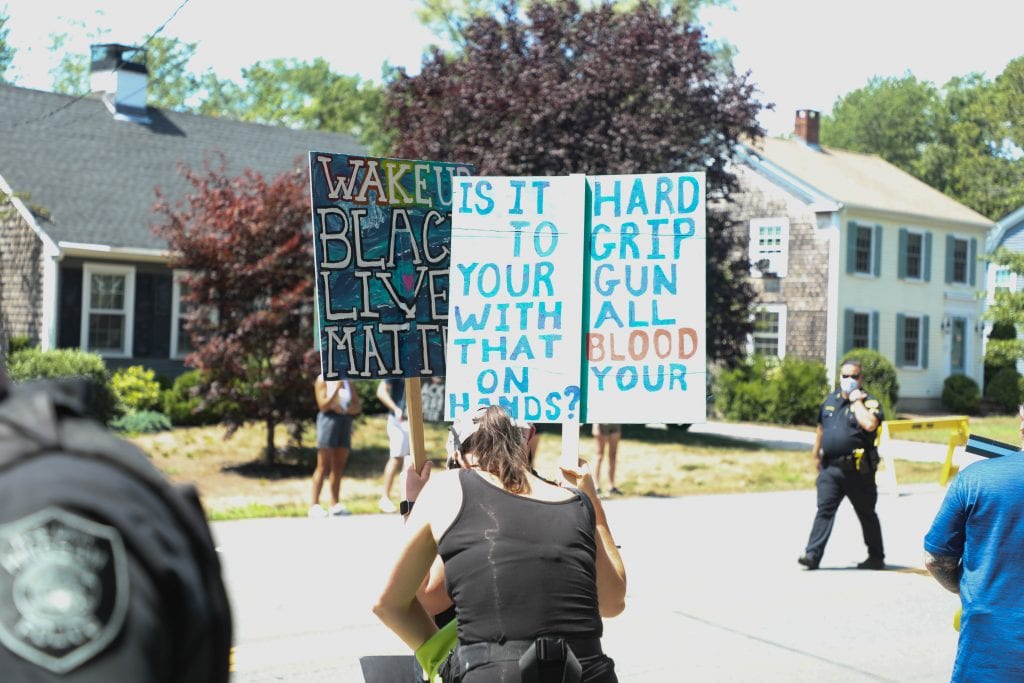 WAKEUP
BLACK
LIVES
MATT
IS IT HARD
TO GRIP
YOUR GUN
WITH ALL
THAT BLOOD
ON YOUR
HANDS?